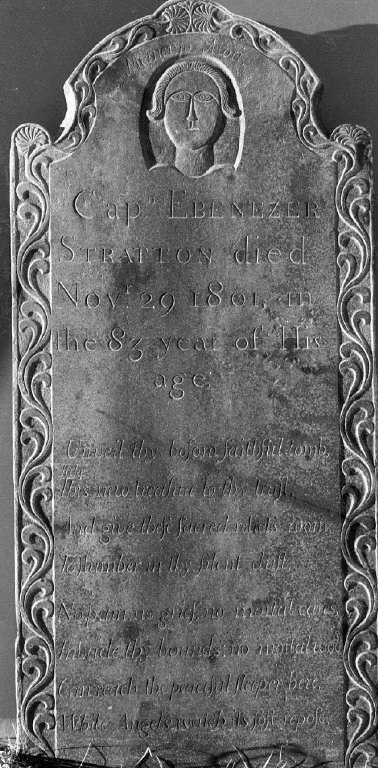 Memento Mori
Capⁿ EBENEZER
STRATTON died
Novʳ 29 1801, in
the 83 year of His
age;
Unveil thy boſom faithful tomb,
this new treaſure to thy truſt,
And give theſe ſacred relicks room,
To ſlumber in thy ſilent duſt.
No pain, no grief, no mortal cares
Invade thy bounds, no mortal woes
Can reach the peaceful ſleeper here,
While Angels watch its ſoft repoſe.